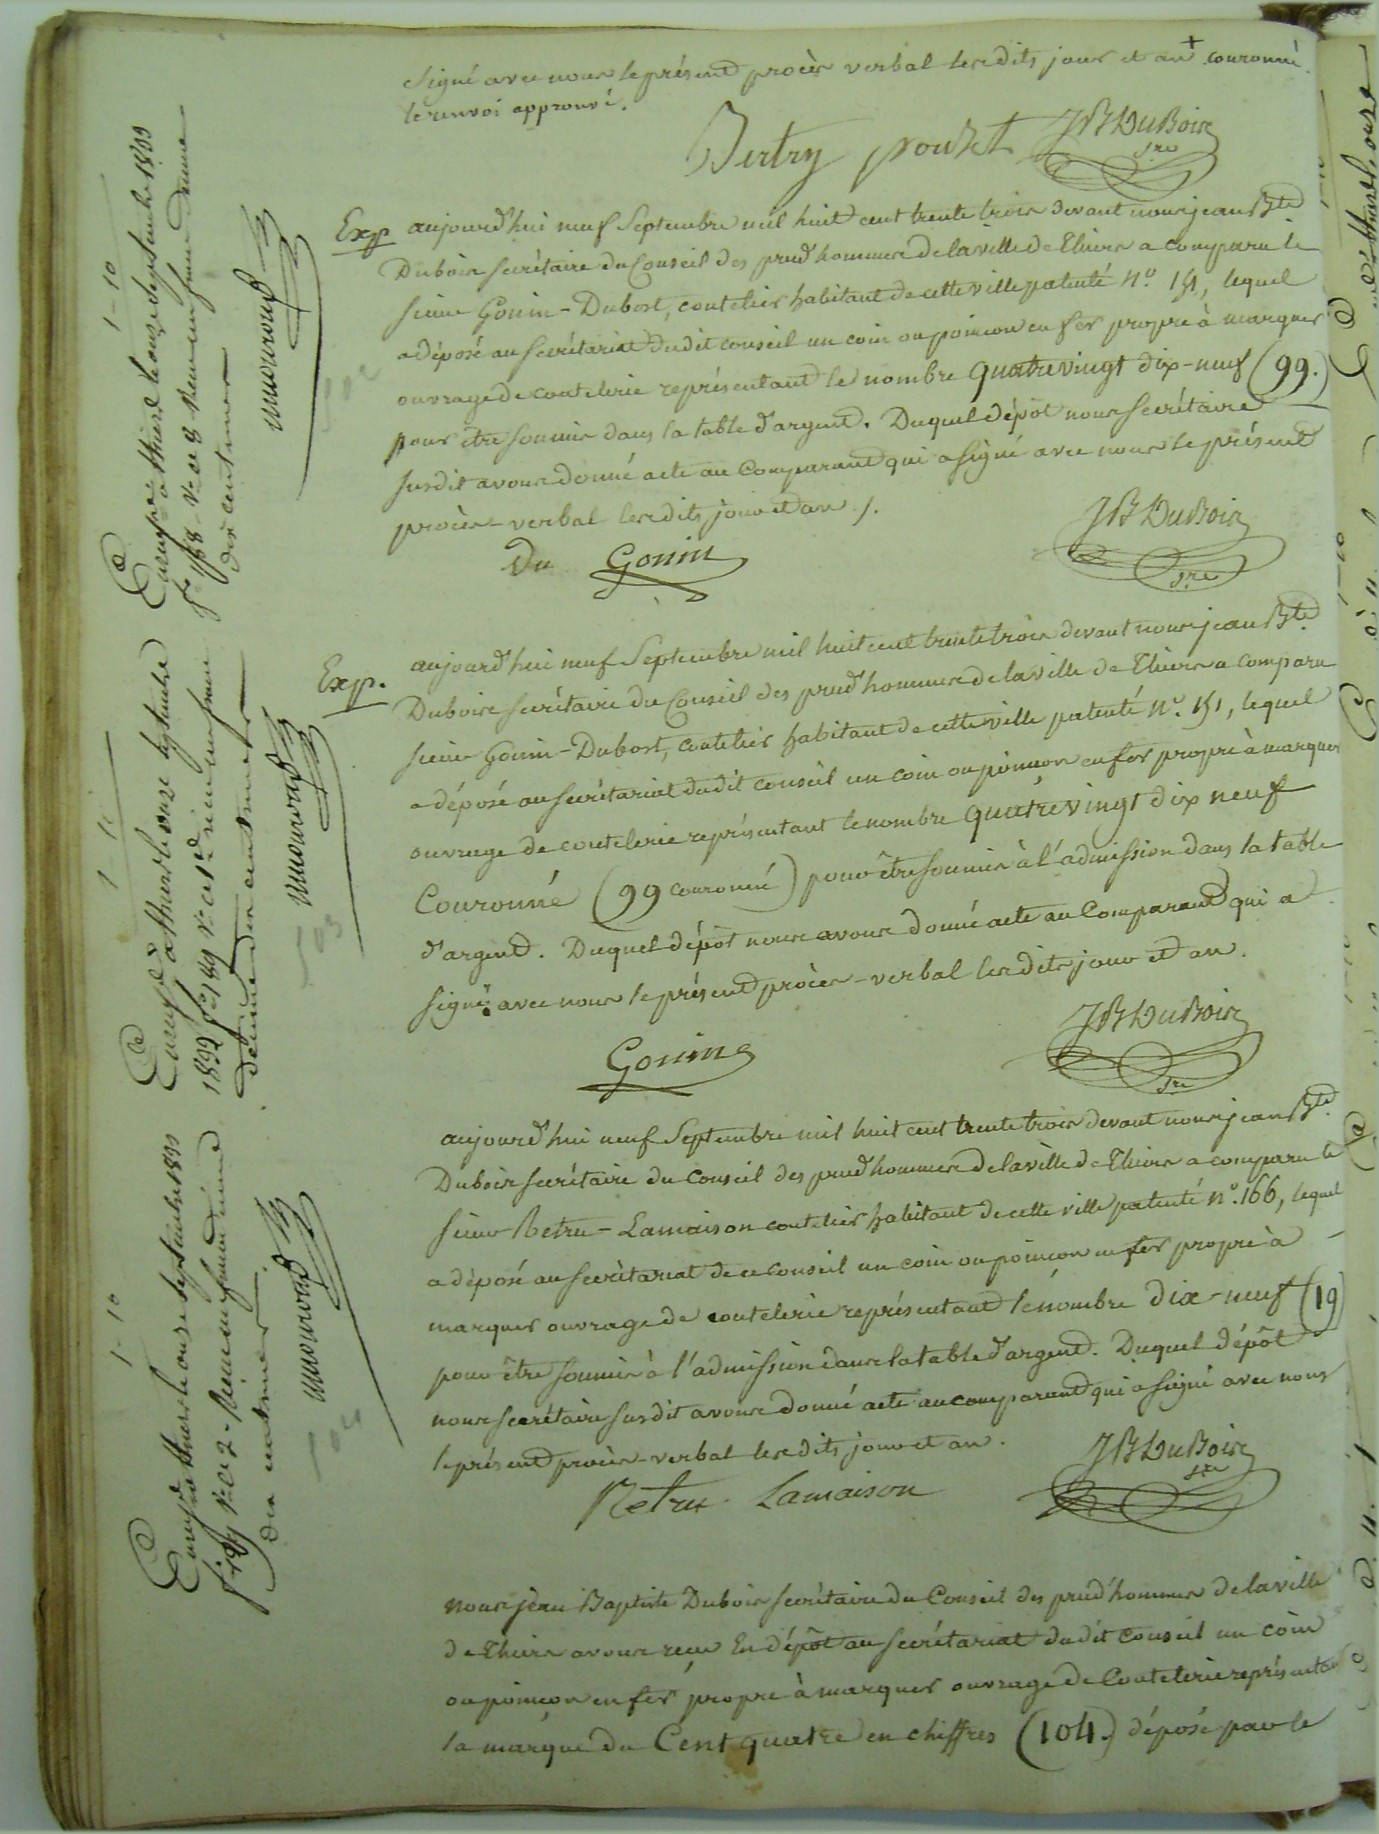 signé avec nous le présent procès verbal lesdits jour et an + couronné.
le renvoi approuvé.
Bertry pouzet JB Dubois
sre
Exp aujourd'hui neuf Septembre mil huit cent trente trois devant nous jean Bte
Dubois secrétaire du Conseil des prud'hommes de la ville de Thiers a comparu le
sieur Gonin-Dubost, coutelier habitant de cette ville patenté n.º 151, lequel
a déposé au secrétariat dudit conseil un coin ou poincon en fer propre à marquer
ouvrage de coutelerie représentant le nombre quatrevingt dix-neuf (99.)
pour être soumis dans la table d'argent. Duquel dépôt nous secrétaire
susdit avons donné acte au Comparant qui a signé avec nous le présent
procès-verbal lesdits jour et an ./.
Du Gonin JB Dubois
sre
Exp. aujourd'hui neuf Septembre mil huit cent trente trois devant nous jean Bte
Dubois secrétaire du Conseil des prud'hommes de la ville de Thiers a comparu
sieur Gonin-Dubost, coutelier habitant de cette ville patenté n.º 151, lequel
a déposé au secrétariat dudit conseil un coin ou poincon en fer propre à marquer
ouvrage de coutelerie représentant le nombre quatrevingt dix neuf
Couronné (99 couronné) pour être soumis à l'admission dans la table
d'argent. Duquel dépôt nous avons donné acte au Comparant qui a
signé avec nous le présent procès-verbal lesdits jour et an.
Gonin JB Dubois
sre
aujourd'hui neuf Septembre mil huit cent trente trois devant nous jean Bte
Dubois secrétaire du Conseil des prud'hommes de la ville de Thiers a comparu le
sieur Retru-Lamaison coutelier habitant de cette ville patenté n.º 166, lequel
a déposé au secrétariat de ce conseil un coin ou poincon en fer propre à
marquer ouvrage de coutelerie représentant le nombre dix-neuf (19)
pour être soumis à l'admission dans la table d'argent. Duquel dépôt
nous secrétaire susdit avons donné acte au comparant qui a signé avec nous
le présent procès-verbal lesdits jour et an.
Retru Lamaison JB Dubois
sre
nous jean Baptiste Dubois secrétaire du Conseil des prud'hommes de la ville
de Thiers avons recu En dépôt au secrétariat dudit conseil un coin
ou poincon en fer propre à marquer ouvrage de Coutelerie représentant
la marque du Cent quatre en chiffres (104.) déposé par le
1-10
Enregé à thiers le onze septembre 1833
dix centimes
Enregé à thiers le onze septembre
1833
décime dix centimes
1-10
Enregé à thiers le onze septembre 1833
dix centimes